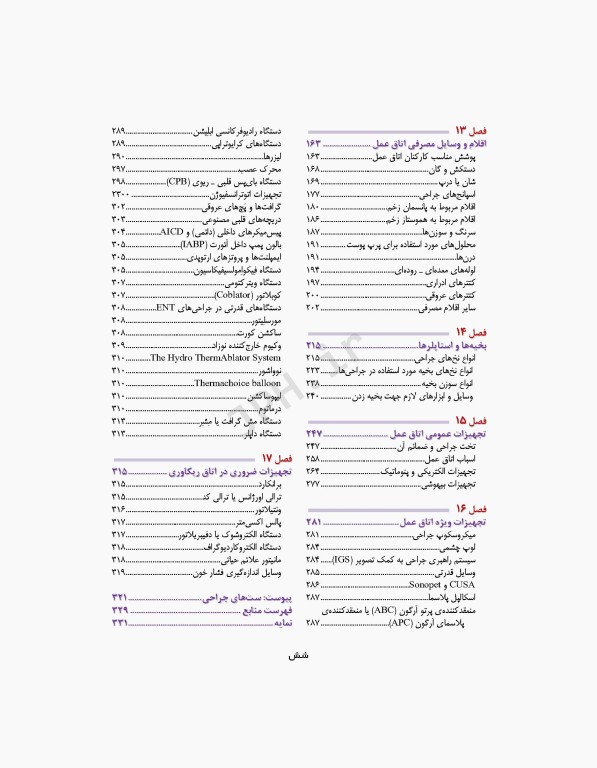 فصل ۱۳
اقلام و وسایل مصرفی اتاق عمل ..................... ۱۶۳
پوشش مناسب کارکنان اتاق عمل.......................۱۶۳
دستکش و گان................................................۱۶۸
شان یا درپ...................................................۱۶۹
اسپانج‌های جراحی.........................................۱۷۷
اقلام مربوط به پانسمان زخم............................۱۸۰
اقلام مربوط به هموستاز زخم...........................۱۸۶
سرنگ و سوزن‌ها............................................۱۸۷
محلول‌های مورد استفاده برای پرپ پوست............۱۹۱
درن‌ها...........................................................۱۹۱
لوله‌های معده‌ای ـ روده‌ای................................۱۹۴
کتترهای ادراری..............................................۱۹۷
کتترهای عروقی..............................................۲۰۰
سایر اقلام مصرفی..........................................۲۰۲
فصل ۱۴
بخیه‌ها و استاپلرها..........................................۲۱۵
انواع نخ‌های جراحی........................................۲۱۵
انواع نخ‌های بخیه مورد استفاده در جراحی‌ها........۲۲۳
انواع سوزن بخیه.............................................۲۳۸
وسایل و ابزارهای لازم جهت بخیه زدن...............۲۴۰
فصل ۱۵
تجهیزات عمومی اتاق عمل .............................۲۴۷
تخت جراحی و ضمائم آن.................................۲۴۷
اسباب اتاق عمل.............................................۲۵۸
تجهیزات الکتریکی و پنوماتیک.........................۲۶۴
تجهیزات بیهوشی...........................................۲۷۷
فصل ۱۶
تجهیزات ویژه اتاق عمل .................................۲۸۱
میکروسکوپ جراحی........................................۲۸۱
لوپ چشمی...................................................۲۸۴
سیستم راهبری جراحی به کمک تصویر (IGS).....۲۸۴
وسایل قدرتی.................................................۲۸۵
CUSA و Sonopet........................................۲۸۶
اسکالپل پلاسما...............................................۲۸۷
منعقدکننده‌ی پرتو آرگون (ABC) یا منعقدکننده‌ی
پلاسمای آرگون (APC)...............................۲۸۷
دستگاه رادیوفرکانسی ابلیشن............................۲۸۹
دستگاه‌های کرایوتراپی....................................۲۸۹
لیزرها...........................................................۲۹۰
محرک عصب..................................................۲۹۷
دستگاه بای‌پس قلبی ـ ریوی (CPB)..................۲۹۸
تجهیزات اتوترانسفیوژن................................۲۳۰۰
گرافت‌ها و پَچ‌های عروقی.................................۳۰۲
دریچه‌های قلبی مصنوعی.................................۳۰۳
پیس‌میکرهای داخلی (دائمی) و AICD..............۳۰۴
بالون پمپ داخل آئورت (IABP)........................۳۰۵
ایمپلنت‌ها و پروتزهای ارتوپدی..........................۳۰۵
دستگاه فیکوامولسیفیکاسیون............................۳۰۵
دستگاه ویترکتومی..........................................۳۰۷
کوبلاتور (Coblator).......................................۳۰۷
دستگاه‌های قدرتی در جراحی‌های ENT.............۳۰۸
مورسلیتور......................................................۳۰۸
ساکشن کورت.................................................۳۰۸
وکیوم خارج‌کننده نوزاد....................................۳۰۹
The Hydro ThermAblator System..........۳۱۰
نوواشور.........................................................۳۱۰
Thermachoice balloon............................۳۱۰
لیپوساکشن....................................................۳۱۰
درماتوم.........................................................۳۱۰
دستگاه مش گرافت یا مِشِر...............................۳۱۳
دستگاه داپلر...................................................۳۱۳
فصل ۱۷
تجهیزات ضروری در اتاق ریکاوری .................۳۱۵
برانکارد.........................................................۳۱۵
ترالی اورژانس یا ترالی کد................................۳۱۵
ونتیلاتور........................................................۳۱۶
پالس اکسی‌متر...............................................۳۱۷
دستگاه الکتروشوک یا دفیبریلاتور......................۳۱۷
دستگاه الکتروکاردیوگراف.................................۳۱۸
مانیتور علائم حیاتی.........................................۳۱۸
وسایل اندازه‌گیری فشار خون............................۳۱۹
پیوست: ست‌های جراحی.................................۳۲۱
فهرست منابع ................................................۳۲۹
نمایه.............................................................۳۳۱
شش